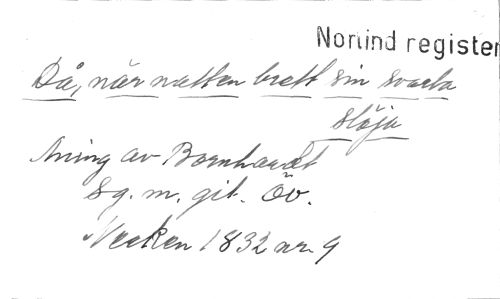 Norlind register
Då, när natten brett sin svarta
slöja
Aning av Bornhardt
Sg. m. git. Öv.
Necken 1832 nr. 9